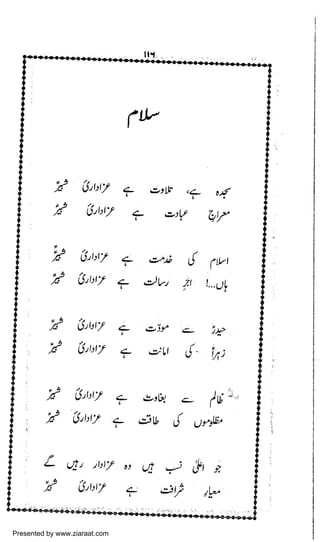 ۱۱۶
سلام
سجدہ ہے، تلاوت ہے عزاداریٔ شبیرؑ
معراجِ عبادت ہے عزاداریٔ شبیرؑ
اسلام کی خدمت ہے عزاداریٔ شبیرؑ
ہاں...! اجرِ رسالت ہے عزاداریٔ شبیرؑ
حیدرؑ سے مودّت ہے عزاداریٔ شبیرؑ
زہراؑ کی امانت ہے عزاداریٔ شبیرؑ
ظالم سے بغاوت ہے عزاداریٔ شبیرؑ
مظلوموں کی طاقت ہے عزاداریٔ شبیرؑ
جو اعلیٰ نسب ہیں وہ عزادار رہیں گے
معیارِ شرافت ہے عزاداریٔ شبیرؑ
Presented by www.ziaraat.com